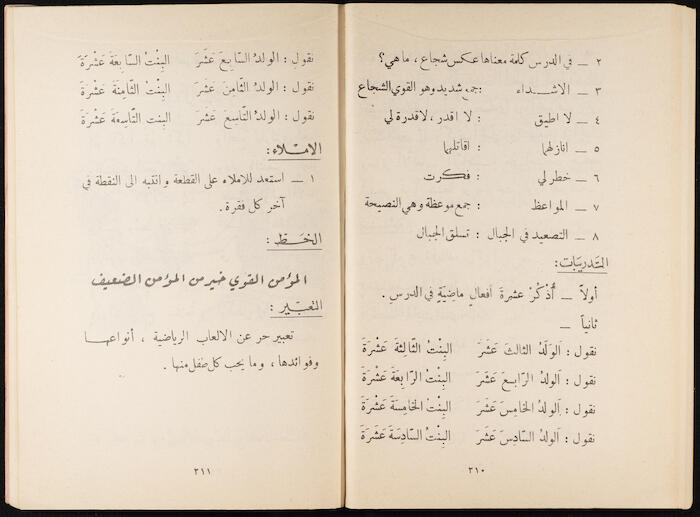 ٢ ــ في الدرس كلمة معناها عكس شجاع ، ما هي؟
٣ ــ الاشــداء : جمع شديد وهو القوي الشجاع
٤ ــ لا اطيق : لا اقدر ، لا قدرة لي
٥ ــ انازلهما : اقاتلهما
٦ ــ خطر لي : فكرت
٧ ــ المواعظ : جمع موعظة وهي النصيحة
٨ ــ التصعيد في الجبال : تسلق الجبال
التدريبات :
أولاً ــ أُذْكُرْ عشرةَ أفعال ماضيَةٍ في الدرس .
ثانياً ــ
نقول : اَلوَلَدُ الثالثَ عَشَرَ البِنْتُ الثّالِثةَ عَشْرَةَ
نقول : اَلولدُ الرّابعَ عَشَرَ البِنْتُ الرّابِعَةَ عَشْرَةَ
نقول : اَلولدُ الخامِسَ عَشَرَ البِنْتُ الخامِسَةَ عَشْرَةَ
نقول : اَلولدُ السّادِسَ عَشَرَ البِنْتُ السّادِسَةَ عَشْرَةَ
٢١٠
نقول : الولدُ السّابِعَ عَشَرَ البِنْتُ السّابِعَةَ عَشْرَةَ
نقول : الولدُ الثّامِنَ عَشَرَ البِنْتُ الثّامِنَةَ عَشْرَةَ
نقول : الولدُ التّاسِعَ عَشَرَ البِنْتُ التّاسِعَةَ عَشْرَةَ
الامْلاء :
١ ــ استعد للاملاء على القطعة وانتبه الى النقطة في
آخر كل فقرة .
الخَطّ :
المؤمن القوي خير من المؤمن الضعيف
التعبير :
تعبير حر عن الالعاب الرياضية ، أنواعهــا
وفوائدها ، وما يحب كل طفل منها .
٢١١